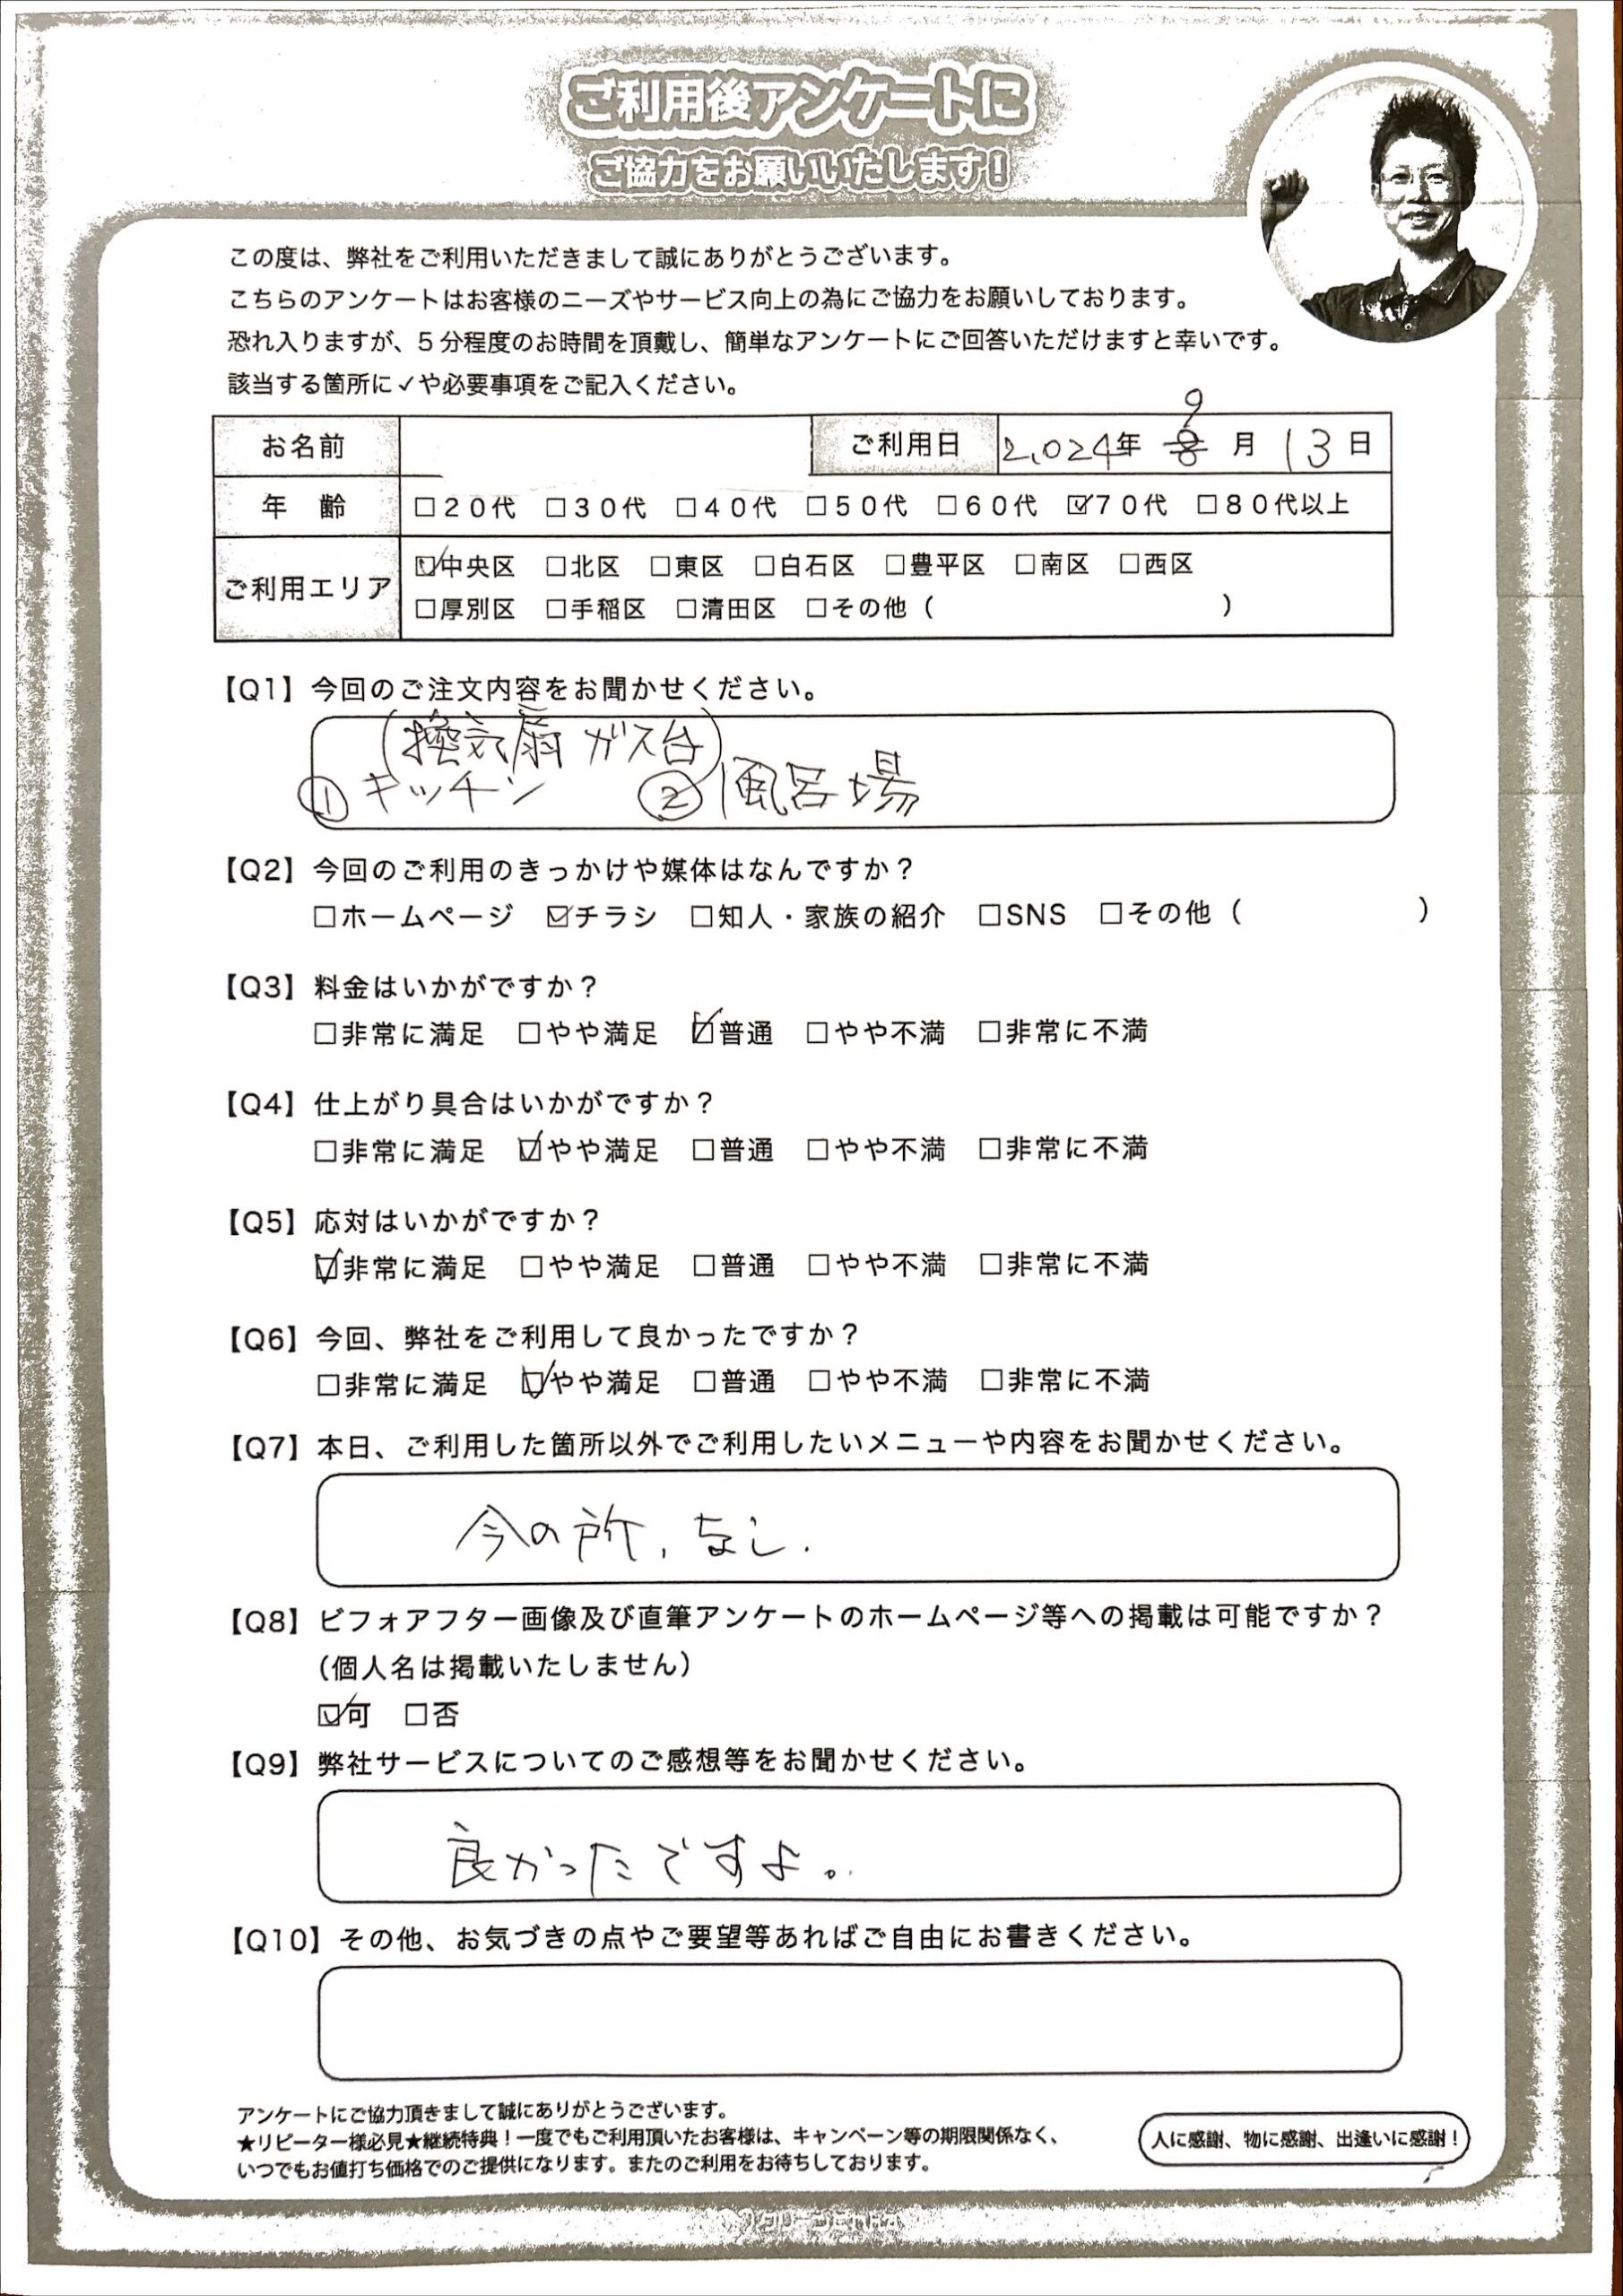 ご利用後アンケートに
ご協力をお願いいたします!
この度は、弊社をご利用いただきまして誠にありがとうございます。
こちらのアンケートはお客様のニーズやサービス向上の為にご協力をお願いしております。
恐れ入りますが、5分程度のお時間を頂戴し、簡単なアンケートにご回答いただけますと幸いです。
該当する箇所に✓や必要事項をご記入ください。
お名前 ご利用日 2024年 9月 13日
年 齢 □20代 □30代 □40代 □50代 □60代 ☑70代 □80代以上
ご利用エリア ☑中央区 □北区 □東区 □白石区 □豊平区 □南区 □西区
□厚別区 □手稲区 □清田区 □その他( )
【Q1】今回のご注文内容をお聞かせください。
(換気扇 ガス台)
①キッチン ②風呂場
【Q2】今回のご利用のきっかけや媒体はなんですか?
□ホームページ ☑チラシ □知人・家族の紹介 □SNS □その他( )
【Q3】料金はいかがですか?
□非常に満足 □やや満足 ☑普通 □やや不満 □非常に不満
【Q4】仕上がり具合はいかがですか?
□非常に満足 ☑やや満足 □普通 □やや不満 □非常に不満
【Q5】応対はいかがですか?
☑非常に満足 □やや満足 □普通 □やや不満 □非常に不満
【Q6】今回、弊社をご利用して良かったですか?
□非常に満足 ☑やや満足 □普通 □やや不満 □非常に不満
【Q7】本日、ご利用した箇所以外でご利用したいメニューや内容をお聞かせください。
今の所、なし.
【Q8】ビフォアフター画像及び直筆アンケートのホームページ等への掲載は可能ですか?
(個人名は掲載いたしません)
☑可 □否
【Q9】弊社サービスについてのご感想等をお聞かせください。
良かったですよ。
【Q10】その他、お気づきの点やご要望等あればご自由にお書きください。
アンケートにご協力頂きまして誠にありがとうございます。
★リピーター様必見★継続特典!一度でもご利用頂いたお客様は、キャンペーン等の期限関係なく、
いつでもお値打ち価格でのご提供になります。またのご利用をお待ちしております。
人に感謝、物に感謝、出逢いに感謝!